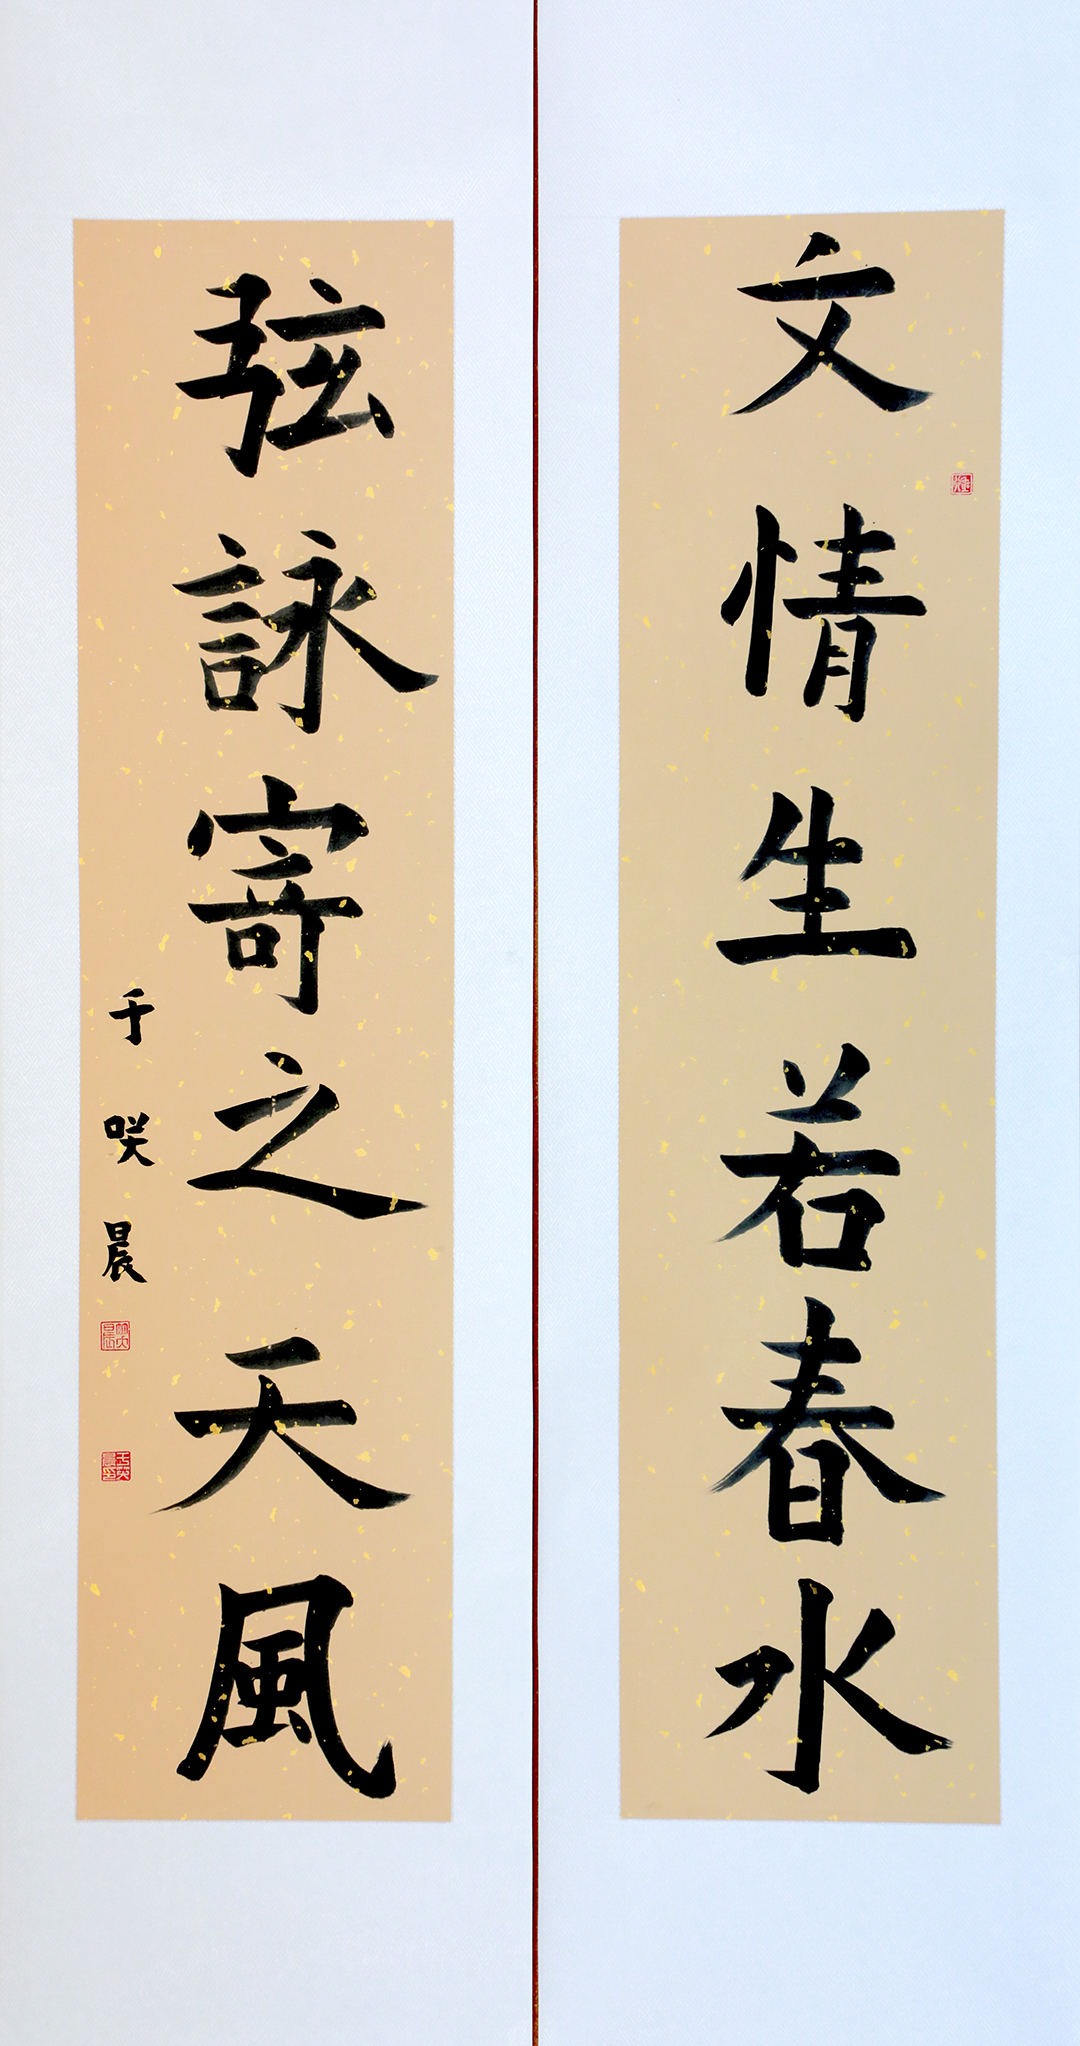 文情生若春水
弦詠寄之天風
于咲晨